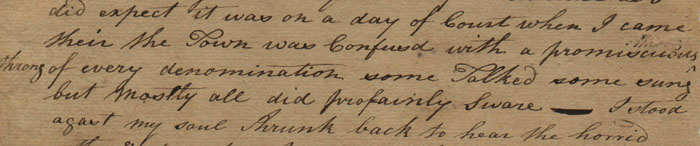 did expect it was on a day of Court when I came
their the Town was Confusd with a promiscuous
throng of every denomination some Talked some sung
but mostly all did profainly Sware — I stood
agast my soul Shrunk back to hear the horrid